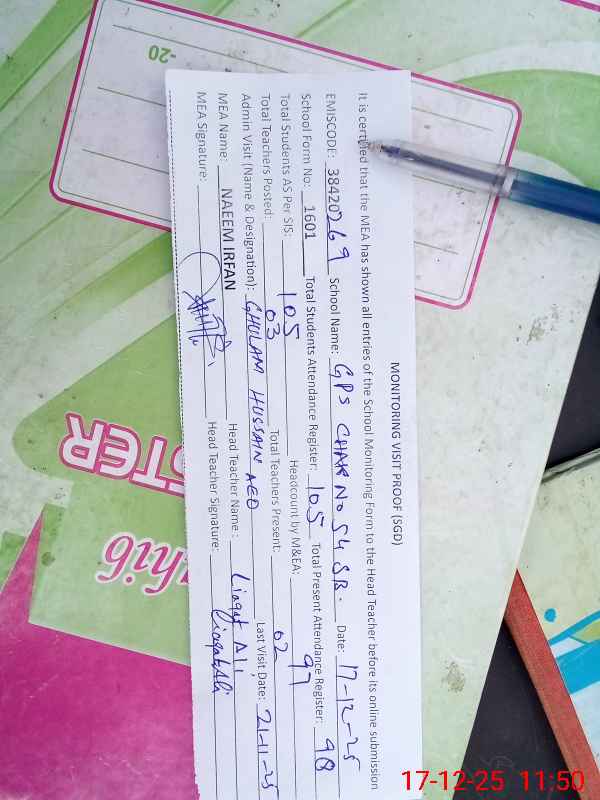 MONITORING VISIT PROOF (SGD)
It is certified that the MEA has shown all entries of the School Monitoring Form to the Head Teacher before its online submission
EMISCODE: 38420269 School Name: GPS CHAK NO 54 SB. Date: 17-12-25
School Form No: 1601 Total Students Attendance Register: 105 Total Present Attendance Register: 98
Total Students AS Per SIS: 105 Headcount by M&EA: 97
Total Teachers Posted: 03 Total Teachers Present: 02
Admin Visit (Name & Designation): GHULAM HUSSAIN AEO Last Visit Date: 21-11-25
MEA Name: NAEEM IRFAN Head Teacher Name: Liaqat Ali
MEA Signature: Head Teacher Signature: Liaqat Ali
-20
STER
17-12-25 11:50